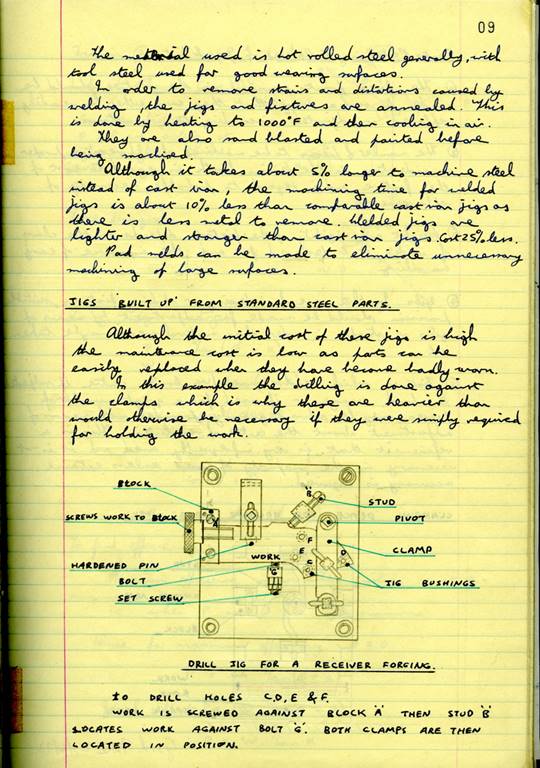 09
The material used is hot rolled steel generally, with
tool steel used for good wearing surfaces.
In order to remove strains and distortions caused by
welding, the jigs and fixtures are annealed. This
is done by heating to 1000°F and then cooling in air.
They are also sand blasted and painted before
being machined.
Although it takes about 5% longer to machine steel
instead of cast iron, the machining time for welded
jigs is about 10% less than comparable cast iron jigs as
there is less metal to remove. Welded jigs are
lighter and stronger than cast iron jigs. Cost 25% less.
Pad welds can be made to eliminate unnecessary
machining of large surfaces.
JIGS 'BUILT UP' FROM STANDARD STEEL PARTS.
Although the initial cost of these jigs is high
the maintenance cost is low as parts can be
easily replaced when they have become badly worn.
In this example the drilling is done against
the clamps which is why these are heavier than
would otherwise be necessary if they were simply required
for holding the work.
BLOCK
"B"
STUD
SCREWS WORK TO BLOCK
A
PIVOT
F
E
CLAMP
D
WORK
C
G
HARDENED PIN
BOLT
JIG BUSHINGS
SET SCREW
DRILL JIG FOR A RECEIVER FORGING.
TO DRILL HOLES C,D,E & F.
WORK IS SCREWED AGAINST BLOCK "A" THEN STUD "B"
LOCATES WORK AGAINST BOLT "G". BOTH CLAMPS ARE THEN
LOCATED IN POSITION.